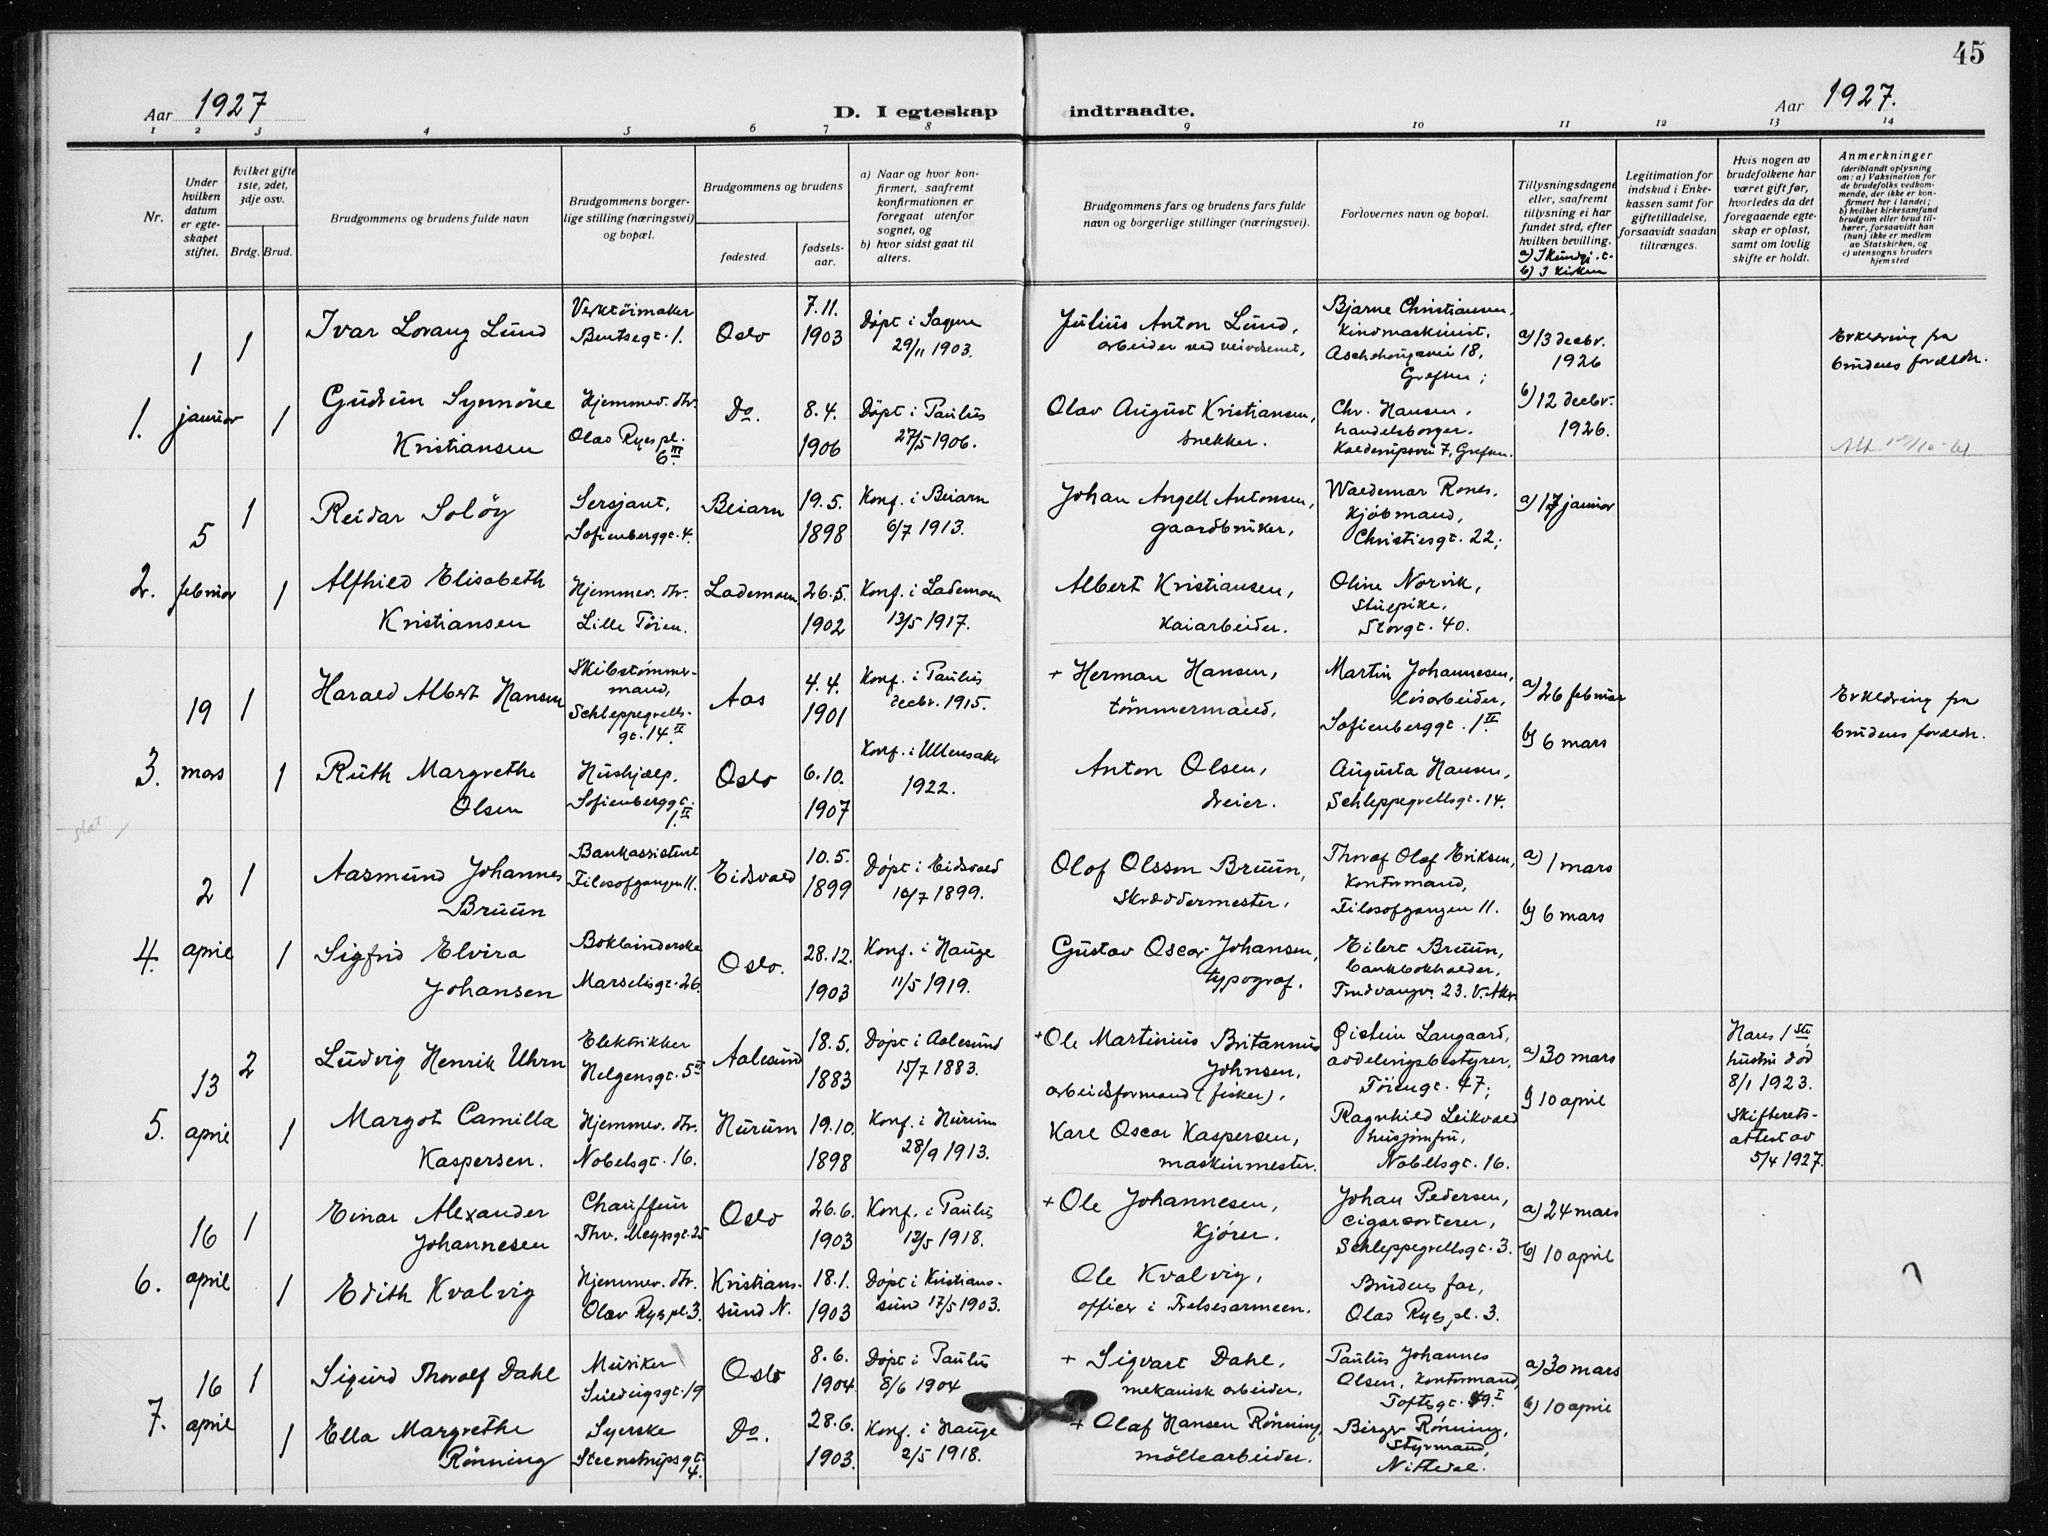 45
Aar 1927
D. I egteskap indtraadte.
Aar 1927.
1 2 3 4 5 6 7 8 9 10 11 12 13 14
Nr.
Under
hvilken
datum
er egte-
skapet
stiftet.
Hvilket gifte
1ste, 2det,
3dje osv.
Brdg. Brud.
Brudgommens og brudens fulde navn
Brudgommens borger-
lige stilling (næringsvei)
og bopæl.
Brudgommens og brudens
fødested.
fødsels-
aar.
a) Naar og hvor kon-
firmert, saafremt
konfirmationen er
foregaat utenfor
sognet, og
b) hvor sidst gaat til
alters.
Brudgommens fars og brudens fars fulde
navn og borgerlige stillinger (næringsvei).
Forlovernes navn og bopæl.
Tillysningsdagene
eller, saafremt
tillysning ei har
fundet sted, efter
hvilken bevilling.
b) I kirken
Legitimation for
indskud i Enke-
kassen samt for
giftetilladelse,
forsaavidt saadan
tiltrænges.
Hvis nogen av
brudefolkene har
været gift før,
hvorledes da det
foregaaende egte-
skap er opløst,
samt om lovlig
skifte er holdt.
Anmerkninger
(deriblandt oplysning
om: a) Vaksination for
de brudefolks vedkom-
mende, der ikke er kon-
firmert her i landet;
b) hvilket kirkesamfund
brudgom eller brud til-
hører, forsaavidt han
(hun) ikke er medlem
av Statskirken, og
c) utensogns bruders
hjemsted
1.
1
januar
1
Ivar Lorang Lund
Verktøimaker
Bentsegt. 1.
Oslo
7.11.
1903
Døpt i Sagene
29/11 1903.
Julius Anton Lund,
arbeider ved veivæsenet,
Bjarne Christiansen,
kinomaskinist,
Aschehougsvei 18,
Grefsen;
a) 13 decbr.
1926
b) 12 decbr.
1926.
Erklæring fra
brudens forældr.
1
Gudrun Synnöve
Kristiansen
Hjemmev. dtr.
Olav Ryes pl.
6 III
Do.
8.4.
1906
Döpt i Paulus
27/5 1906.
Olav August Kristiansen,
snekker.
Chr. Hansen,
handelsborger.
Kaldernpsvei 7, Grefsen.
2.
5
februar
1
Reidar Soløy
Sersjant,
Sofienberggt. 4.
Beiarn
19.5.
1898
Konf. i Beiarn
6/7 1913.
Johan Angell Antonsen,
gaardbruker,
Waldemar Rones.
Kjøbmand,
Christiesgt. 22;
a) 17 januar
1
Alfhild Elisabeth
Kristiansen
Hjemmev. dtr.
Lille Töien.
Lademoen
26.5.
1902
Konf. i Lademoen
13/5 1917.
Albert Kristiansen,
kaiarbeider.
Oline Norvik,
Stuepike,
Storgt. 40.
3.
19
mars
1
Harald Albert Hansen
Skibstømmer-
mand,
Schleppegrells-
gt. 14 II
Aas
4.4.
1901
Konf. i Paulus
decbr. 1915.
+ Herman Hansen,
tömmermand,
Martin Johannesen,
løsarbeider,
Sofienberggt. 1 II
a) 26 februar
b) 6 mars
Erklæring fra
brudens forældr.
1
Ruth Margrethe
Olsen
Hushjælp.
Sofienberggt.
1 II
Oslo
6.10.
1907
Konf. i Ullensaker
1922.
Anton Olsen,
dreier.
Augusta Hansen,
Schleppegrellsgt. 14.
4.
2
april
1
Aasmund Johannes
Bruun
Bankassistent
Filosofgangen 11.
Eidsvold
10.5.
1899
Døpt i Eidsvold
16/7 1899.
Olof Olsson Bruun,
Skræddermester,
Thoraf Olaf Eriksen,
kontormand,
Filosofgangen 11.
a) 1 mars
b) 6 mars
1
Sigfrid Elvira
Johansen
Bokbinderske
Marselisgt. 26.
Oslo.
28.12.
1903
Konf. i Hauge
11/5 1919.
Gustav Oscar Johansen,
typograf.
Eilert Bruun,
bankbokholder,
Trudvangv. 23. V. Aker
5.
13
april
2
Ludvig Henrik Uhrn
Elektrikker
Helgensgt. 5 III
Aalesund
18.5.
1883
Døpt i Aalesund
15/7 1883.
+ Ole Martinius Britannus
Johnsen,
arbeidsformand (fisker),
Øistein Langaard,
avdelingsbestyrer,
Töiengt. 47;
a) 30 mars
b) 10 april
Hans 1ste
hustru død
8/1 1923.
Skifterets-
attest av
5/4 1927.
1
Margot Camilla
Kaspersen.
Hjemmev. dtr.
Nobelsgt. 16.
Hurum
19.10.
1898
Konf. i Hurum
28/9 1913.
Karl Oscar Kaspersen,
maskinmester.
Ragnhild Leikvold
husjomfru,
Nobelsgt. 16.
6.
16
april
1
Einar Alexander
Johannesen
Chauffeur
Thv. Meyersgt. 25
Oslo
26.6.
1903
Konf. i Paulus
12/5 1918.
+ Ole Johannesen,
Kjører.
Johan Pedersen,
cigarsorterer,
Schleppegrellsgt. 3.
a) 24 mars
b) 10 april
1
Edith Kvalvig
Hjemmev. dtr.
Olav Ryspl. 3.
Kristians-
sund N.
18.1.
1903
Døpt i Kristians-
sund 17/5 1903.
Ole Kvalvig,
officer i Frelsesarmeen.
Brudens far,
Olav Ryes pl. 3.
7.
16
april
1
Sigurd Thoralf Dahl
Musiker
Oslo
8.6.
1904
Døpt i Paulus
8/6 1904
+ Sigvart Dahl,
mekanisk arbeider,
Paulus Johannes
Olsen, kontormand,
Toftesgt. 49 I
a) 30 mars
b) 10 april
1
Ella Margrethe
Rønning
Syerske
Steenstrupsgt.
4.
Do.
28.6.
1903.
Konf. i Hauge
2/5 1918.
+ Olaf Hansen Rønning,
møllearbeider.
Birger Rønning,
Styrmand,
Nittedal.